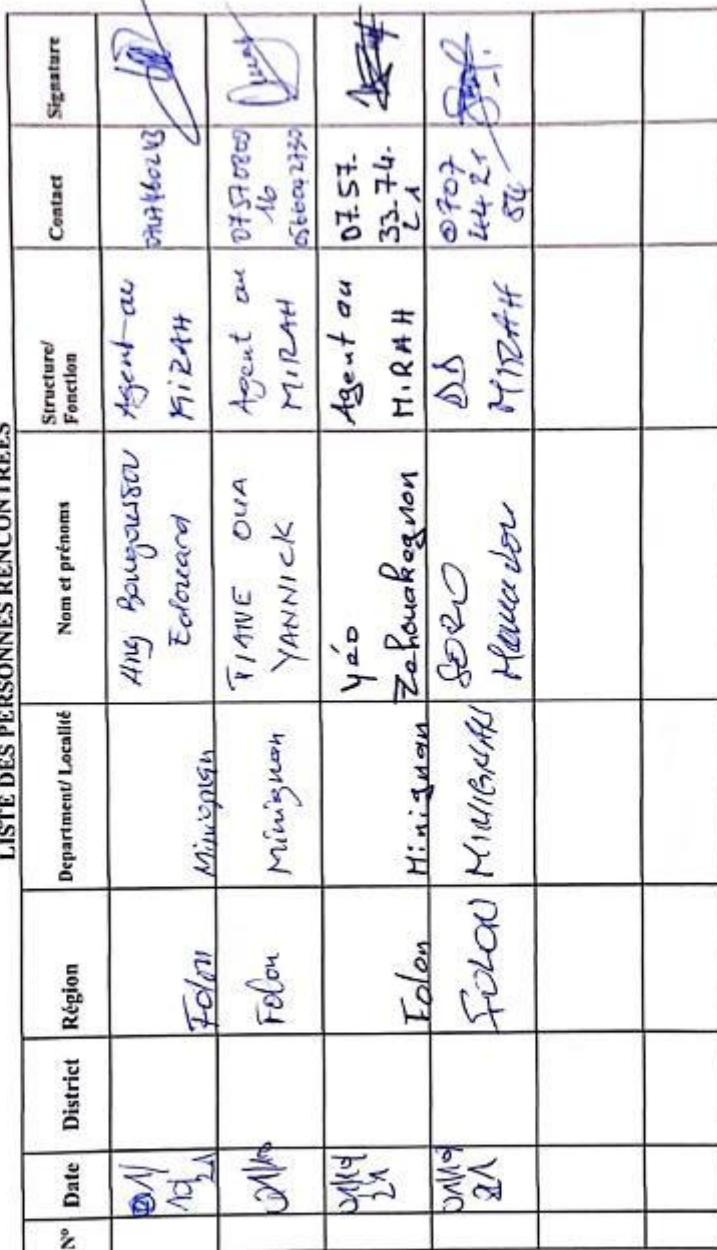 LISTE DES PERSONNES RENCONTREES
N° Date District Région Department/ Localité Nom et prénoms Structure/ Fonction Contact Signature
01/10/21 Folon Minignan Edouard Agent au MIRAH
01/10 Folon Minignan YANNICK Agent au MIRAH 0757080016
01/10/21 Folon Minignan Yéo Zahouakognon Agent au MIRAH 07.57.33.74.21
01/10/21 FOLON MINIGNAN SORO Mamadou DD MIRAH 0707442154